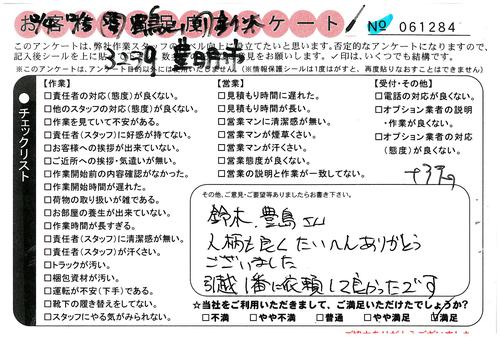 お客様満足度アンケート
No 061284
このアンケートは、弊社作業スタッフのスキル向上に役立てたいと思います。否定的なアンケートになりますので、
✓印は、いくつでも結構です。
※このアンケートは目的以外に使用しません。(※情報保護シールは1度はがすと、再度貼りなおすことはできません)
豊明市
チェックリスト
【作業】
□責任者の対応(態度)が良くない。
□他のスタッフの対応(態度)が良くない。
□作業を見ていて不安がある。
□責任者(スタッフ)に好感が持てない。
□お客様への挨拶が出来ていない。
□ご近所への挨拶・気遣いが無い。
□作業開始前の内容確認がなかった。
□作業開始時間が遅れた。
□荷物の取り扱いが雑である。
□お部屋の養生が出来ていない。
□作業時間が長すぎる。
□責任者(スタッフ)に清潔感が無い。
□責任者(スタッフ)が汗くさい。
□トラックが汚い。
□梱包資材が汚い。
□運転が不安(下手)である。
□靴下の履き替えをしてない。
□スタッフにやる気がみられない。
【営業】
□見積もり時間に遅れた。
□見積もり時間が長い。
□営業マンに清潔感が無い。
□営業マンが煙草くさい。
□営業マンが汗くさい。
□営業態度が良くない。
□営業の説明と作業が一致してない。
【受付・その他】
□電話の対応が良くない。
□オプション業者の説明
・作業が良くない。
□オプション業者の対応
(態度)が良くない。
その他、ご意見・ご要望等ありましたらお書き下さい。
鈴木、豊島さん
人柄も良くたいへんありがとう
ございました
引越1番に依頼して良かったです
☆当社をご利用いただきまして、ご満足いただけたでしょうか?
□不満 □やや不満 □普通 □やや満足 ☑満足